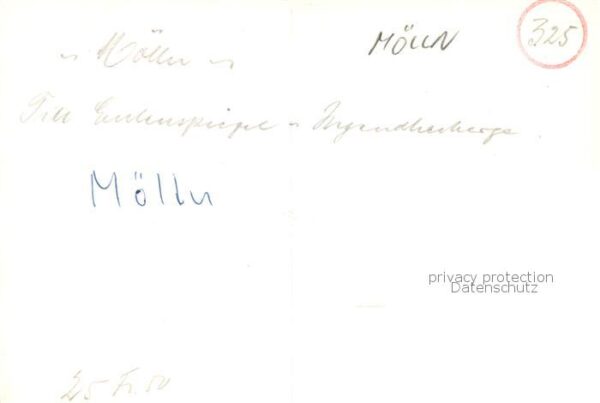 „ Mölln „
MÖLLN
325
Till Eulenspiegel - Jugendherberge.
Mölln
privacy protection
Datenschutz